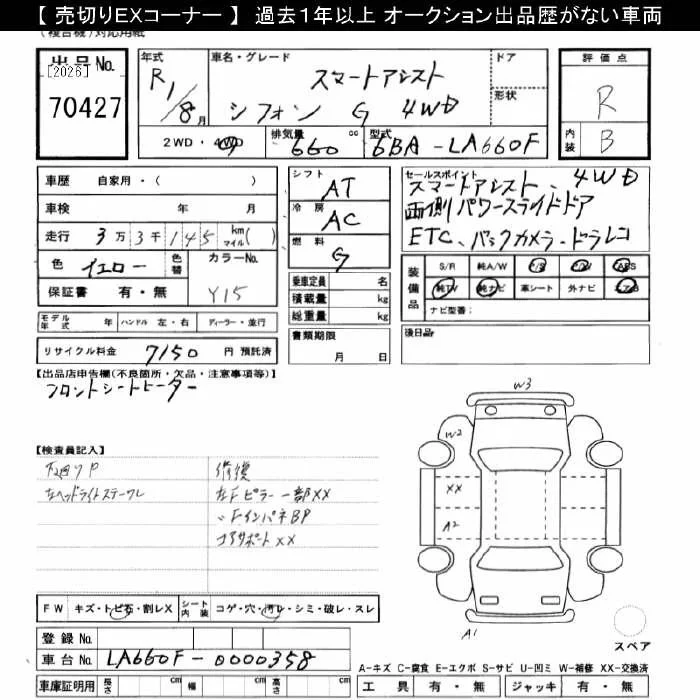 【 売切りEXコーナー 】 過去1年以上 オークション出品歴がない車両
(複合機)対応用紙
出品No.
[2026]
70427
年式
R1/8月
車名・グレード
スマートアシスト
シフォン G 4WD
ドア
形状
評価点
R
内装
B
2WD・4WD
排気量
660 cc
型式
6BA-LA660F
車歴 自家用・( )
車検 年 月
走行 3万3千145 km マイル( )
色 イエロー
色替
カラーNo.
Y15
保証書 有・無
シフト
AT
冷房
AC
燃料
G
乗車定員 名
積載量 kg
総重量 kg
セールスポイント
スマートアシスト、4WD
両側パワースライドドア
ETC、バックカメラ、ドラレコ
装備品
S/R 純A/W P/S P/W ABS
純TV 純ナビ 革シート 外ナビ エアB
ナビ型番:
モデル年式 年 ハンドル 左・右 ディーラー・並行
リサイクル料金 7150 円 預託済
書類期限
月 日
後日品
【出品店申告欄(不良箇所・欠品・注意事項等)】
フロントシートヒーター
【検査員記入】
下廻りP
左ヘッドライトステーワレ
修復
左Fピラー一部XX
〃FインパネBP
コアサポートXX
W3
W2
XX
A2
A1
スペア
FW キズ・トビ石・割レX
シート内装 コゲ・穴・汚レ・シミ・破レ・スレ
登録No.
車台No. LA660F-0000358
車庫証明用 長さ cm 幅 cm 高さ cm
A-キズ C-腐食 E-エクボ S-サビ U-凹ミ W-補修 XX-交換済
工具 有・無 ジャッキ 有・無